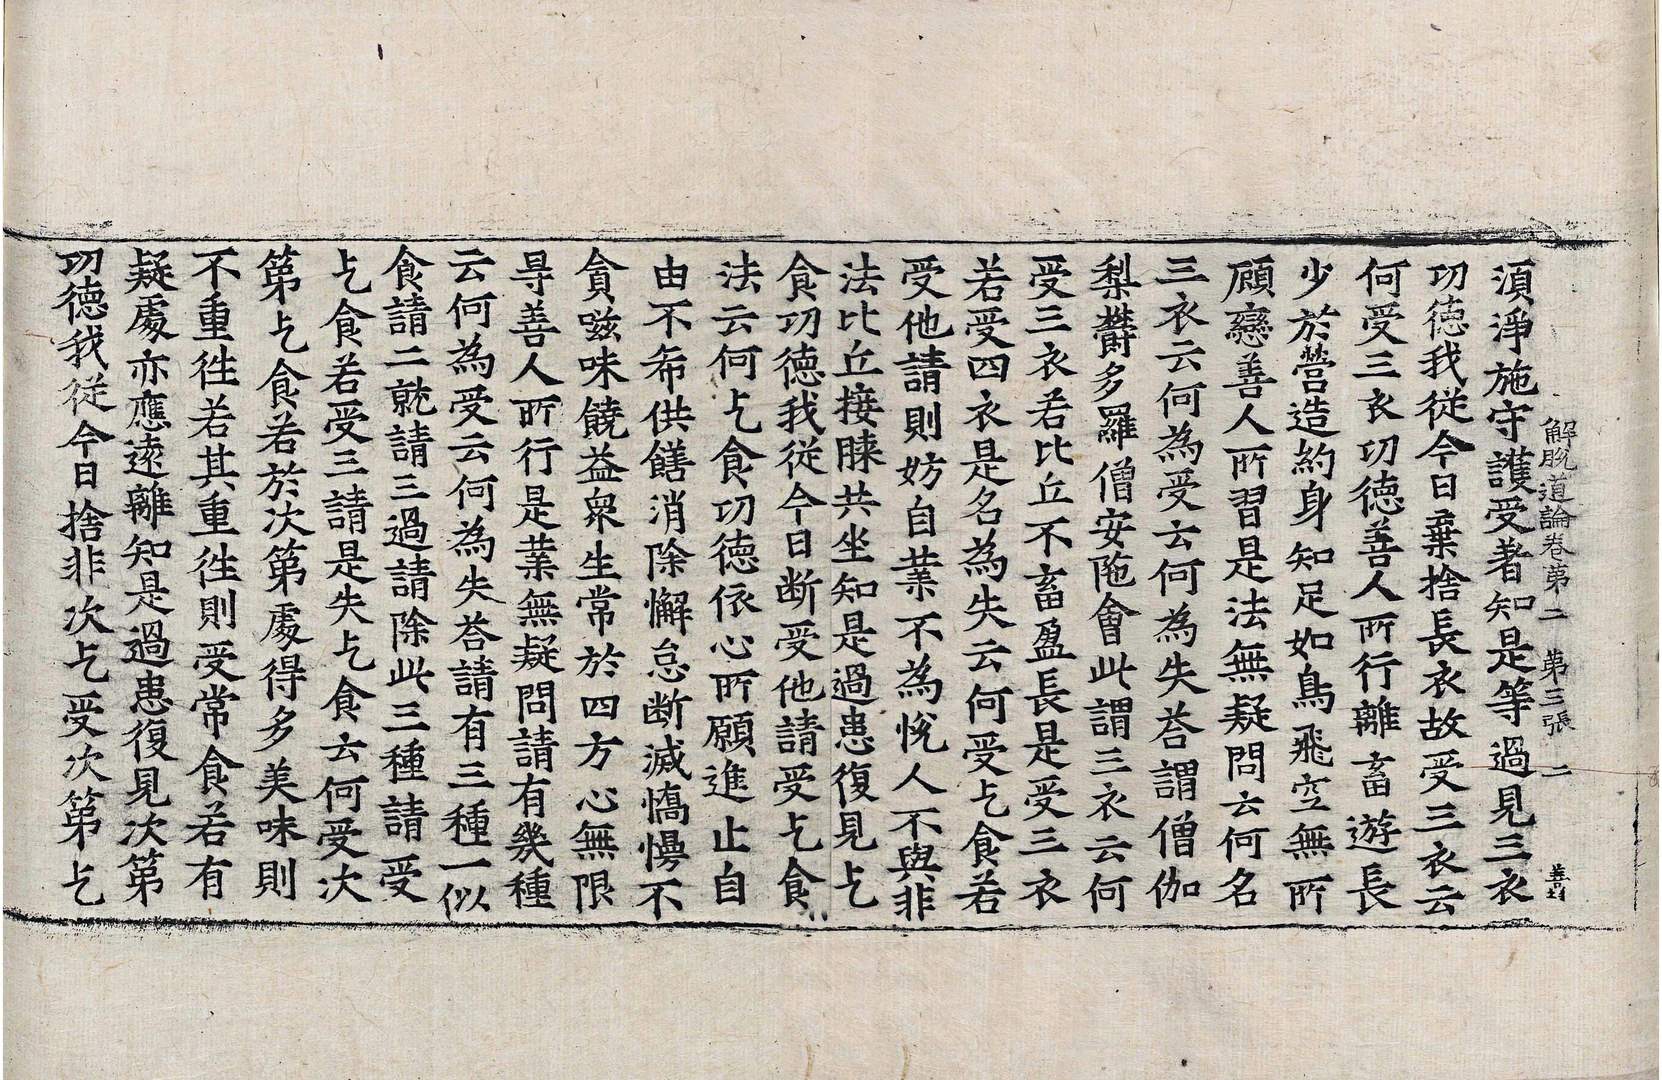 解脫道論卷第二　第三張　二　善
湏淨施守護受著知是等過見三衣
功德我從今日棄捨長衣故受三衣云
何受三衣功德善人所行離畜遊長
少於營造約身知足如鳥飛空無所
顧戀善人所習是法無疑問云何名
三衣云何為受云何為失荅謂僧伽
梨欎多羅僧安陁會此謂三衣云何
受三衣若比丘不畜盈長是受三衣
若受四衣是名為失云何受乞食若
受他請則妨自業不為恱人不與非
法比丘接膝共坐知是過患復見乞
食功德我從今日断受他請受乞食
法云何乞食功德依心所願進止自
由不希供饍消除懈怠断滅憍慢不
貪嗞味饒益衆生常於四方心無限
㝵善人所行是業無疑問請有幾種
云何為受云何為失荅請有三種一似
食請二就請三過請除此三種請受
乞食若受三請是失乞食云何受次
第乞食若於次第處得多美味則
不重徃若其重徃則受常食若有
疑處亦應遠離知是過患復見次第
功德我從今日捨非次乞受次第乞